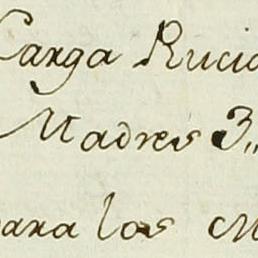 Carga Rucio
Madres 3,,
para los M